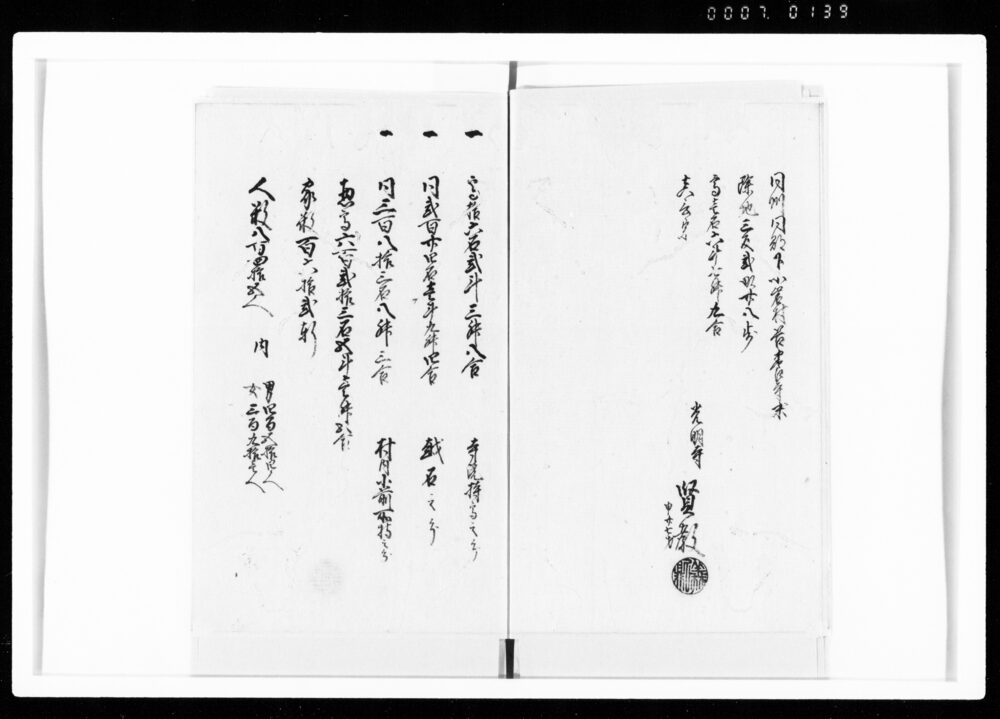 0007. 0139
同州同郡下小岩村善養寺末
除地三反弐畝廿八歩
高壱石六斗八升九合
真言宗
光明寺
賢
申廿七才
一 高拾六石弐斗三升八合 寺院持高之分
一 同弐百廿四石壱斗九升四合 越石之分
一 同三百八拾三石八升三合 村内小前所持之分
惣高六百弐拾三石五斗壱升五合
家数百六拾弐軒
人数八百四拾五人 内
男四百五拾四人
女三百九拾壱人